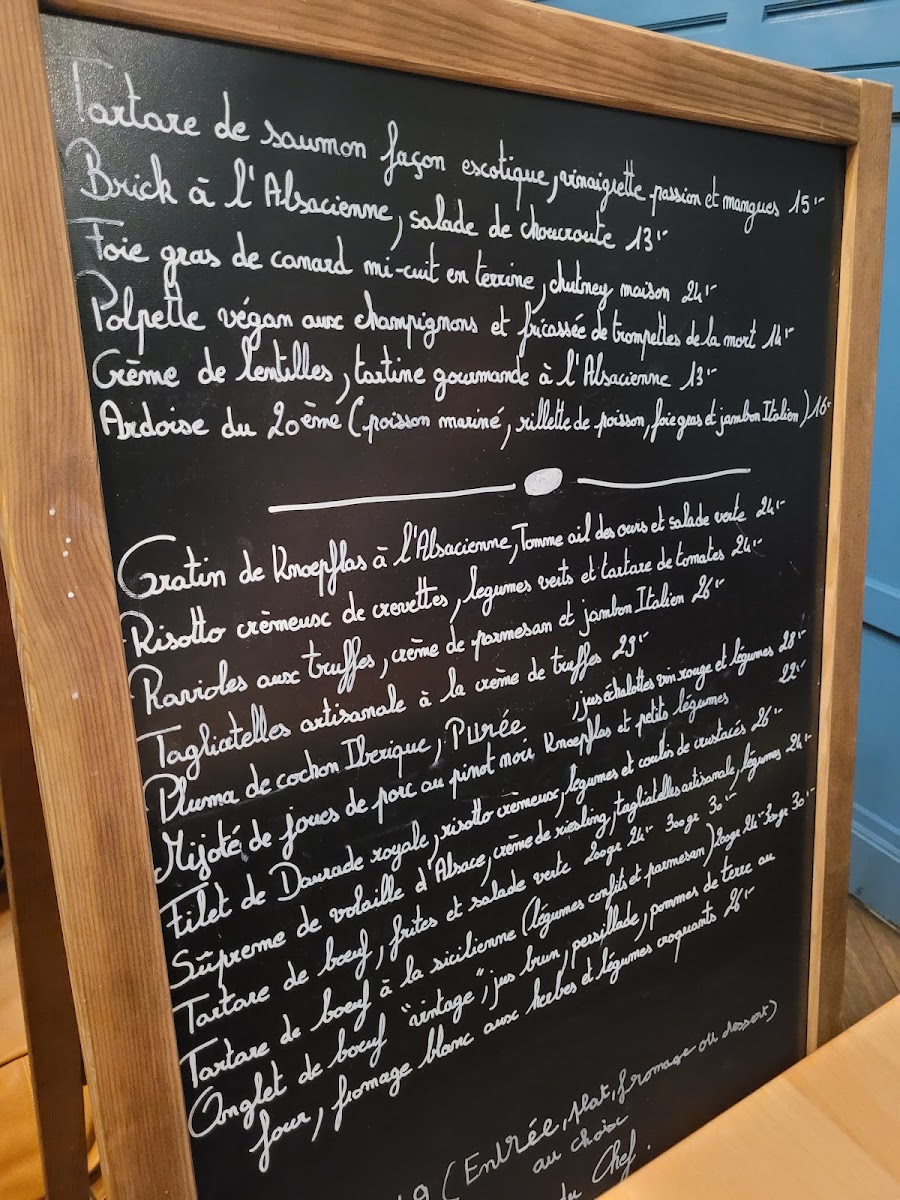 Tartare de saumon façon escotique, vinaigrette passion et mangues 15.-
Brick à l'Alsacienne, salade de choucroute 13.-
Foie gras de canard mi-cuit en terrine, chutney maison 24.-
Polpette végan aux champignons et fricassée de trompettes de la mort 14.-
Crème de lentilles, tartine gourmande à l'Alsacienne 13.-
Ardoise du 20ème (poisson mariné, rillette de poisson, foie gras et jambon Italien) 16.-
Gratin de Knoepflas à l'Alsacienne, Tomme ail des ours et salade verte 24.-
Risotto crèmeux de crevettes, légumes verts et tartare de tomates 24.-
Ravioles aux truffes, crème de parmesan et jambon Italien 26.-
Tagliatelles artisanale à la crème de truffes 23.-
Pluma de cochon Iberique, Purée, jus échalottes vin rouge et légumes 28.-
Mijoté de joues de porc au pinot noir Knoepflas et petits légumes 22.-
Filet de Daurade royale, risotto crèmeux, légumes et coulis de crustacés 26.-
Sûpreme de volaille d'Alsace, crème de riesling, tagliatelles artisanale, légumes 24.-
Tartare de bœuf, frites et salade verte 200gr 24.- 300gr 30.-
Tartare de bœuf à la sicilienne (légumes confits et parmesan) 200gr 24.- 300gr 30.-
Onglet de bœuf "vintage", jus brun, persillade, pommes de terre au
four, fromage blanc aux herbes et légumes croquants 26.-
(Entrée, plat, fromage ou dessert)
au choix
du Chef.